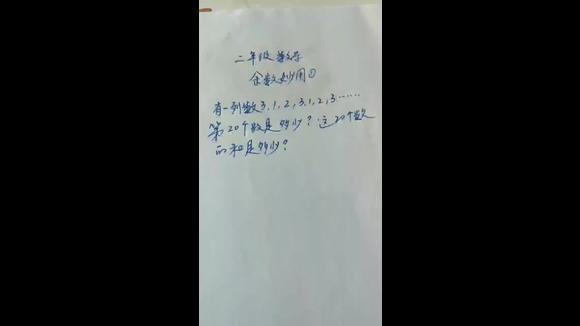 二年级数学
余数妙用①
有一列数3,1,2,3,1,2,3……
第20个数是多少?这20个数
的和是多少?